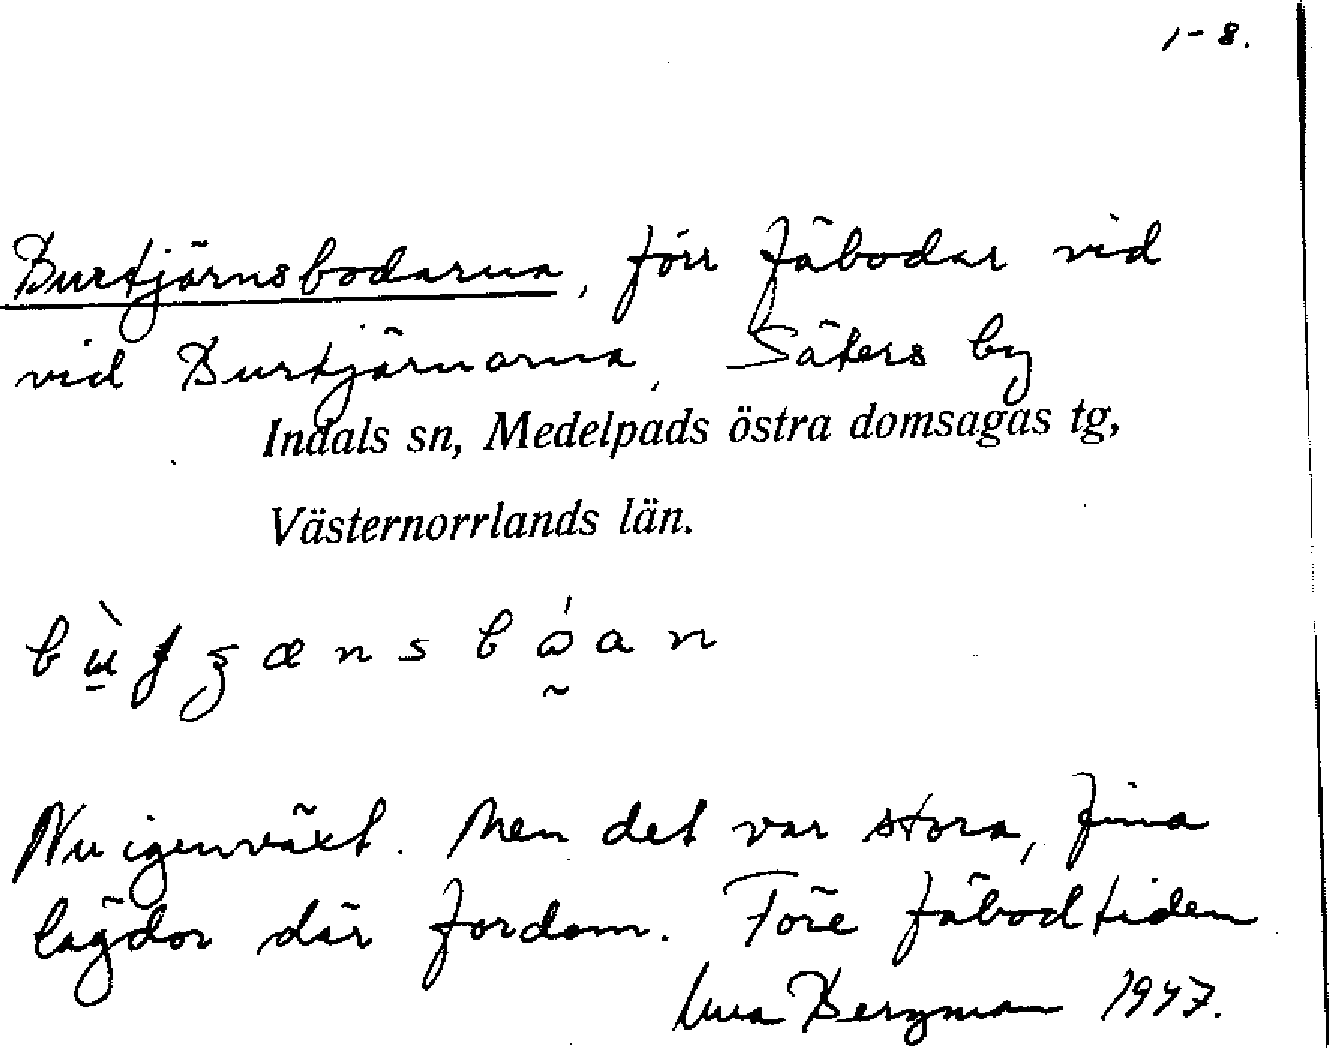 1-8.
Burtjärnsbodarna, förr fäbodar vid
vid Burtjärnarna, Säters by
Indals sn, Medelpads östra domsagas tg,
Västernorrlands län.
Nu igenväxt. Men det var stora, fina
lägdor där fordom. Före fäbodtiden
Bergman 1947.